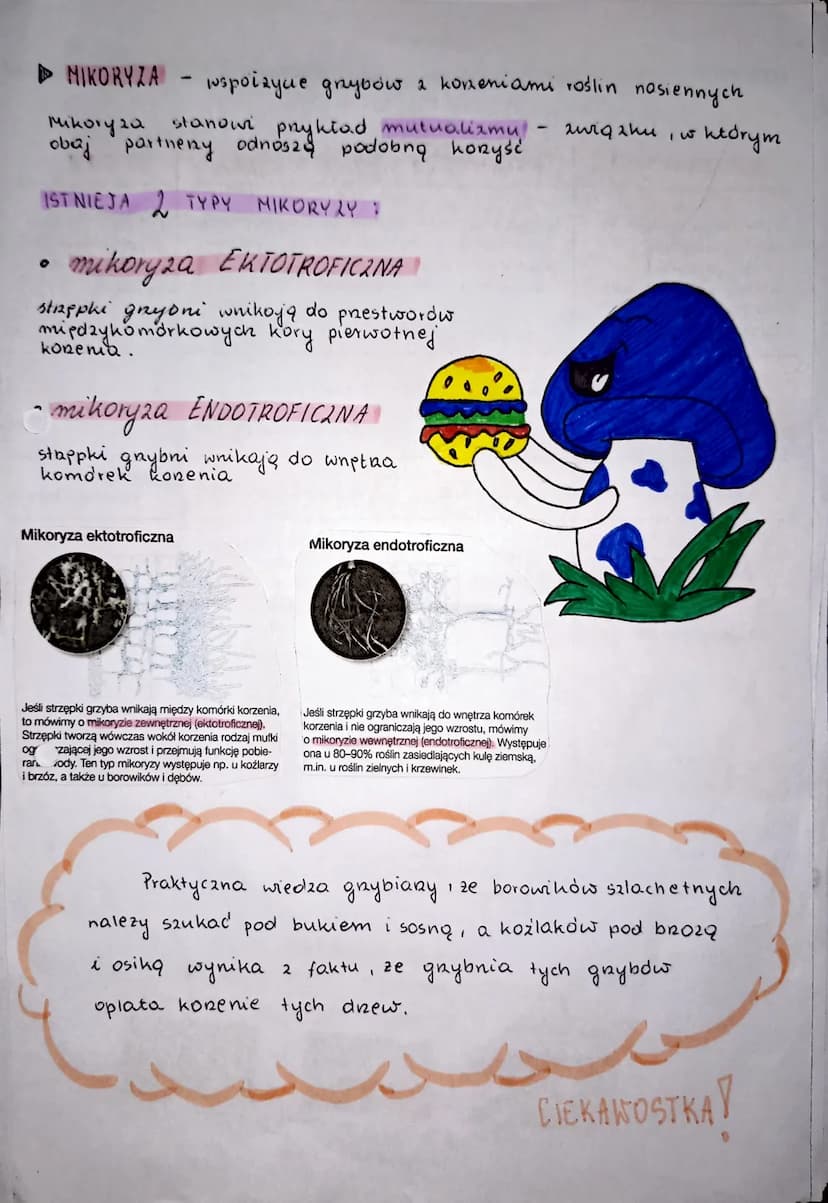 MIKORYZA – współżycie grzybów z korzeniami roślin nasiennych
Mikoryza stanowi przykład mutualizmu – związku, w którym
obaj partnerzy odnoszą podobną korzyść
ISTNIEJA 2 TYPY MIKORYZY:
• mikoryza EKTOTROFICZNA
strzępki grzybni wnikają do przestworów
międzykomórkowych kory pierwotnej
korzenia.
- mikoryza ENDOTROFICZNA
strzępki grzybni wnikają do wnętrza
komórek korzenia
Mikoryza ektotroficzna
Jeśli strzępki grzyba wnikają między komórki korzenia,
to mówimy o mikoryzie zewnętrznej (ektotroficznej).
Strzępki tworzą wówczas wokół korzenia rodzaj mufki
jego wzrost i przejmują funkcję pobie-
wody. Ten typ mikoryzy występuje np. u koźlarzy
i brzóz, a także u borowików i dębów.
Mikoryza endotroficzna
Jeśli strzępki grzyba wnikają do wnętrza komórek
korzenia i nie ograniczają jego wzrostu, mówimy
o mikoryzie wewnętrznej (endotroficznej). Występuje
ona u 80–90% roślin zasiedlających kulę ziemską,
m.in. u roślin zielnych i krzewinek.
Praktyczna wiedza grzybiarzy, że borowików szlachetnych
należy szukać pod bukiem i sosną, a koźlaków pod brzozą
i osiką wynika z faktu, że grzybnia tych grzybów
oplata korzenie tych drzew.
CIEKAWOSTKA!